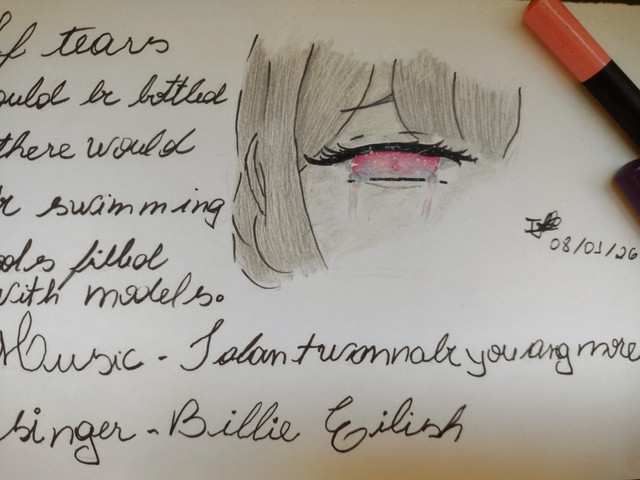 If tears
ould be bottled
there would
be swimming
ols filled
with models.
Music - I don't wanna be you anymore
singer - Billie Eilish
08/01/26